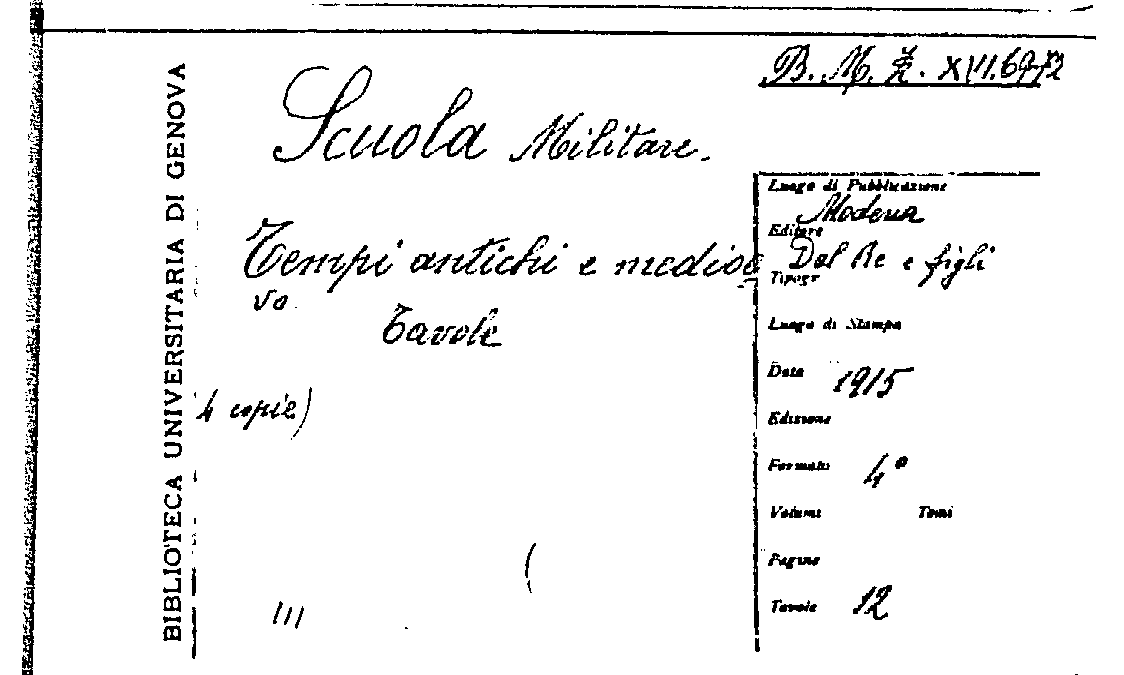 BIBLIOTECA UNIVERSITARIA DI GENOVA
B. M. Z. XVII.69-72
Scuola Militare.
Tempi antichi e medioe
vo
Tavole
4 copie)
III
Luogo di Pubblicazione
Modena
Editore
Dal Re e figli
Tipogr
Luogo di Stampa
Data 1915
Edizione
Formato 4°
Volumi Tomi
Pagine
Tavole 12